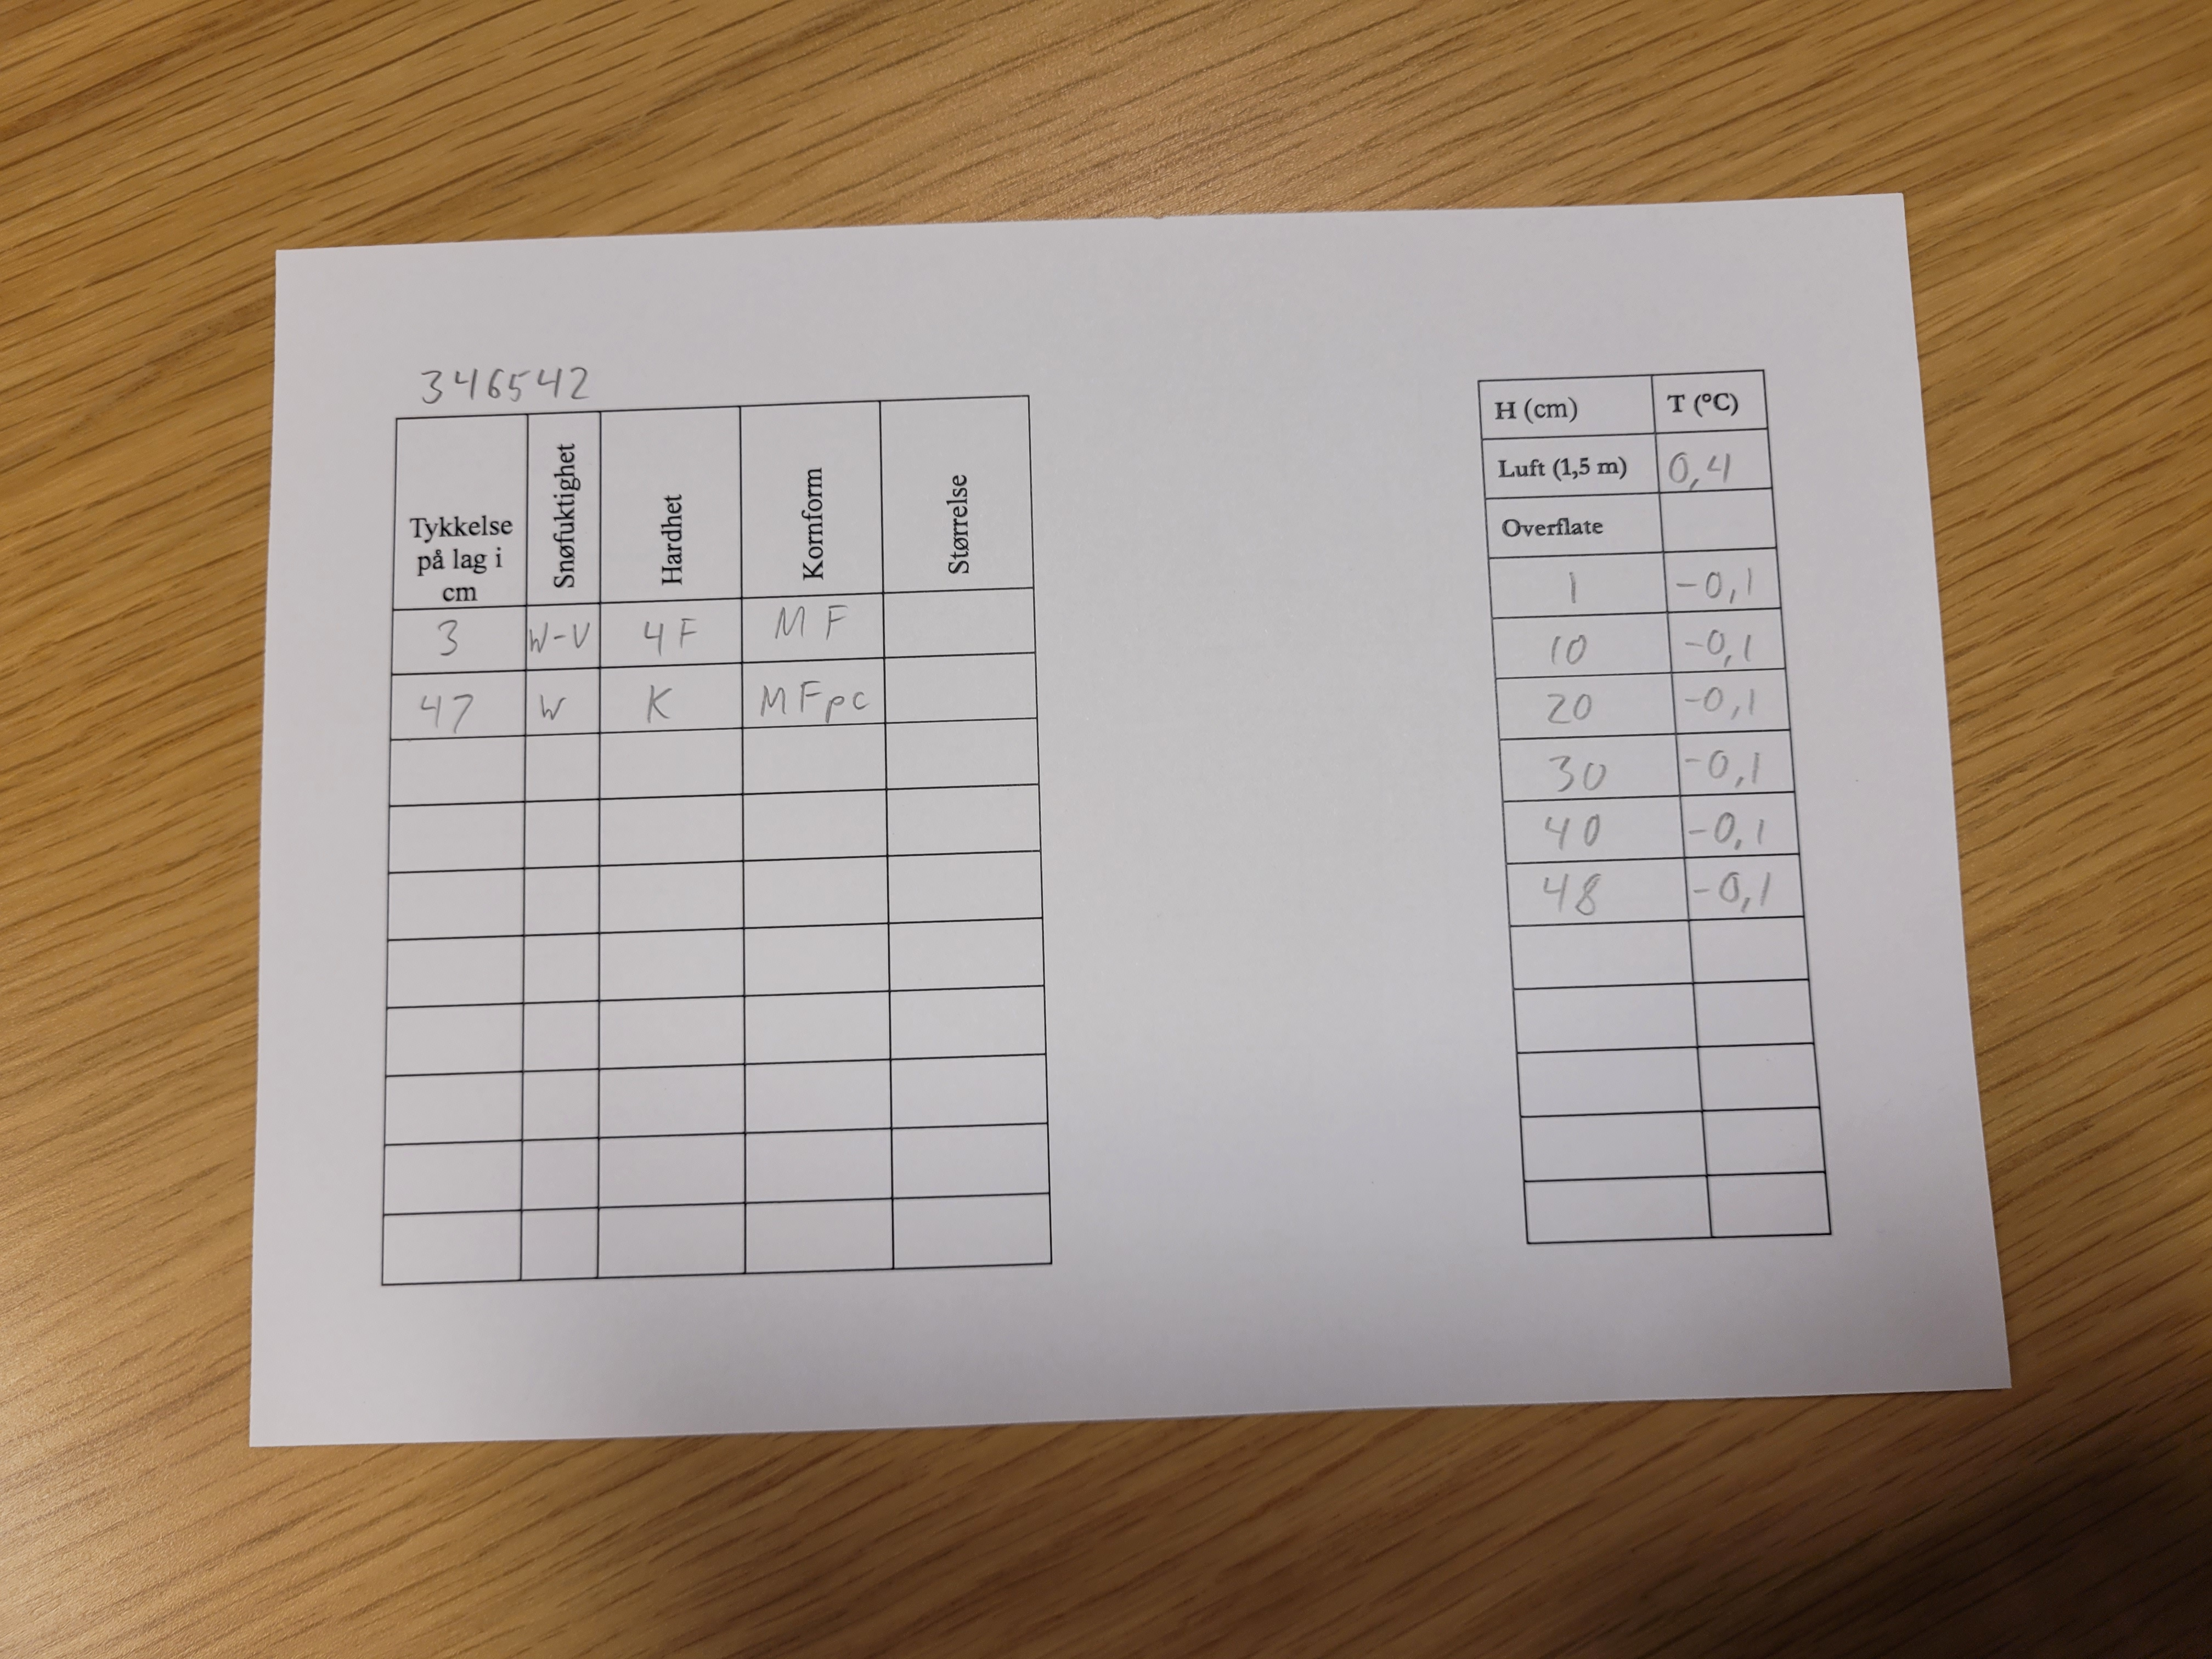 346542
Tykkelse på lag i cm Snøfuktighet Hardhet Kornform Størrelse
3 W-V 4F MF
47 W K MFpc
H (cm) T (°C)
Luft (1,5 m) 0,4
Overflate
1 -0,1
10 -0,1
20 -0,1
30 -0,1
40 -0,1
48 -0,1